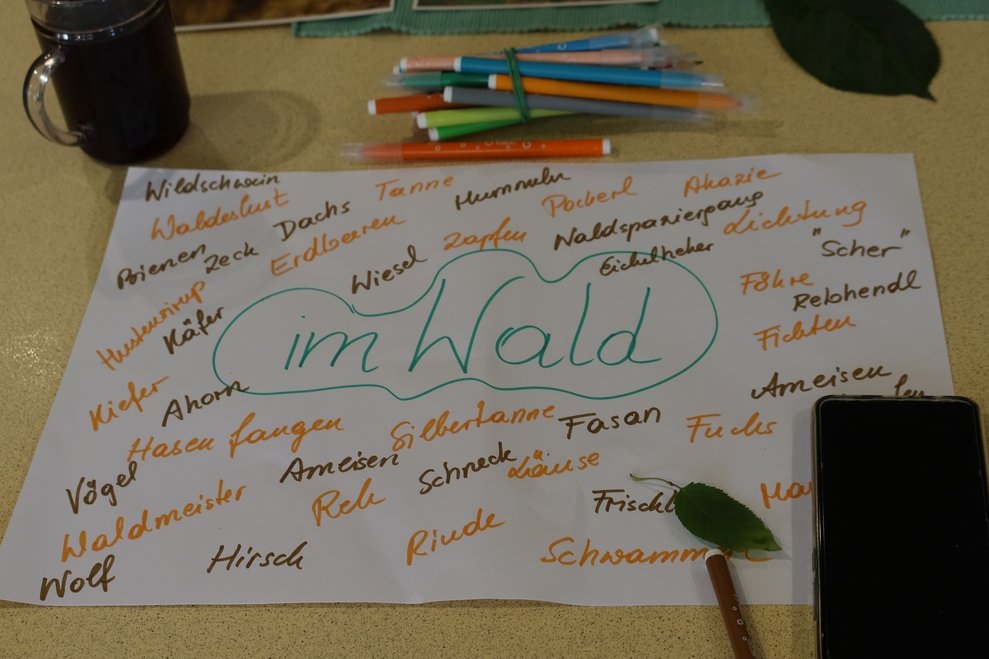 Wildschwein
Tanne
Hummeln
Pockerl
Akazie
Waldeslust
Dachs
Waldspaziergang
Lichtung
Bienen
Zeck
Erdbeeren
Wiesel
Zapfen
Eichelheher
"Scher"
Hustensirup
Käfer
im Wald
Föhre
Rebhendl
Fichten
Kiefer
Ahorn
Ameisen
Hasen fangen
Silbertanne
Fasan
Fuchs
Vögel
Ameisen
Schneck
Läuse
Waldmeister
Reh
Rinde
Wolf
Hirsch